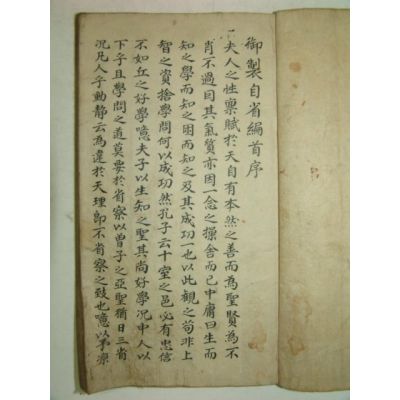 御製自省編首序
夫人之性稟賦於天自有本然之善而為聖賢為不
肖不過因其氣質亦因一念之操舍而已中庸曰生而
知之學而知之困而知之及其成功一也以此觀之苟非上
智之資捨學問何以成功然孔子云十室之邑必有忠信
不如丘之好學噫夫子以生知之聖其尚好學況中人以
下乎且學問之道莫要於省察以曾子之亞聖猶曰三省
況凡人乎動靜云為違於天理即不省察之致也噫以予涼